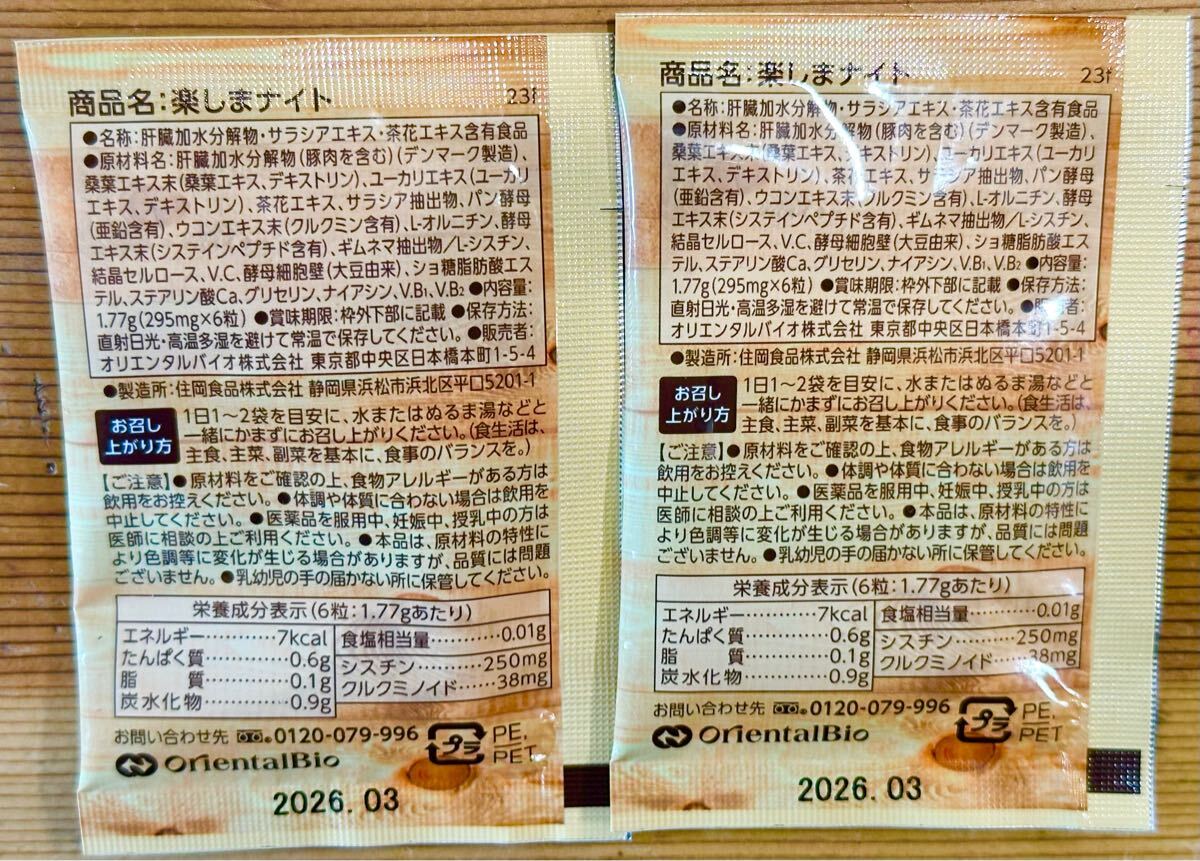 商品名:楽しまナイト 23f
●名称:肝臓加水分解物・サラシアエキス・茶花エキス含有食品
●原材料名:肝臓加水分解物(豚肉を含む)(デンマーク製造)、
桑葉エキス末(桑葉エキス、デキストリン)、ユーカリエキス(ユーカリ
エキス、デキストリン)、茶花エキス、サラシア抽出物、パン酵母
(亜鉛含有)、ウコンエキス末(クルクミン含有)、L-オルニチン、酵母
エキス末(システインペプチド含有)、ギムネマ抽出物/L-シスチン、
結晶セルロース、V.C、酵母細胞壁(大豆由来)、ショ糖脂肪酸エス
テル、ステアリン酸Ca、グリセリン、ナイアシン、V.B₁、V.B₂ ●内容量:
1.77g(295mg×6粒) ●賞味期限:枠外下部に記載 ●保存方法:
直射日光・高温多湿を避けて常温で保存してください。●販売者:
オリエンタルバイオ株式会社 東京都中央区日本橋本町1-5-4
●製造所:住岡食品株式会社 静岡県浜松市浜北区平口5201-1
お召し
上がり方
1日1〜2袋を目安に、水またはぬるま湯などと
一緒にかまずにお召し上がりください。(食生活は、
主食、主菜、副菜を基本に、食事のバランスを。)
【ご注意】●原材料をご確認の上、食物アレルギーがある方は
飲用をお控えください。●体調や体質に合わない場合は飲用を
中止してください。●医薬品を服用中、妊娠中、授乳中の方は
医師に相談の上ご利用ください。●本品は、原材料の特性に
より色調等に変化が生じる場合がありますが、品質には問題
ございません。●乳幼児の手の届かない所に保管してください。
栄養成分表示(6粒:1.77gあたり)
エネルギー…………7kcal
たんぱく質…………0.6g
脂 質…………0.1g
炭水化物…………0.9g
食塩相当量…………0.01g
シスチン…………250mg
クルクミノイド……38mg
お問い合わせ先 0120-079-996
OrientalBio
プラ
PE,
PET
2026.03
商品名:楽しまナイト 23f
●名称:肝臓加水分解物・サラシアエキス・茶花エキス含有食品
●原材料名:肝臓加水分解物(豚肉を含む)(デンマーク製造)、
桑葉エキス末(桑葉エキス、デキストリン)、ユーカリエキス(ユーカリ
エキス、デキストリン)、茶花エキス、サラシア抽出物、パン酵母
(亜鉛含有)、ウコンエキス末(クルクミン含有)、L-オルニチン、酵母
エキス末(システインペプチド含有)、ギムネマ抽出物/L-シスチン、
結晶セルロース、V.C、酵母細胞壁(大豆由来)、ショ糖脂肪酸エス
テル、ステアリン酸Ca、グリセリン、ナイアシン、V.B₁、V.B₂ ●内容量:
1.77g(295mg×6粒) ●賞味期限:枠外下部に記載 ●保存方法:
直射日光・高温多湿を避けて常温で保存してください。●販売者:
オリエンタルバイオ株式会社 東京都中央区日本橋本町1-5-4
●製造所:住岡食品株式会社 静岡県浜松市浜北区平口5201-1
お召し
上がり方
1日1〜2袋を目安に、水またはぬるま湯などと
一緒にかまずにお召し上がりください。(食生活は、
主食、主菜、副菜を基本に、食事のバランスを。)
【ご注意】●原材料をご確認の上、食物アレルギーがある方は
飲用をお控えください。●体調や体質に合わない場合は飲用を
中止してください。●医薬品を服用中、妊娠中、授乳中の方は
医師に相談の上ご利用ください。●本品は、原材料の特性に
より色調等に変化が生じる場合がありますが、品質には問題
ございません。●乳幼児の手の届かない所に保管してください。
栄養成分表示(6粒:1.77gあたり)
エネルギー…………7kcal
たんぱく質…………0.6g
脂 質…………0.1g
炭水化物…………0.9g
食塩相当量…………0.01g
シスチン…………250mg
クルクミノイド……38mg
お問い合わせ先 0120-079-996
OrientalBio
プラ
PE,
PET
2026.03